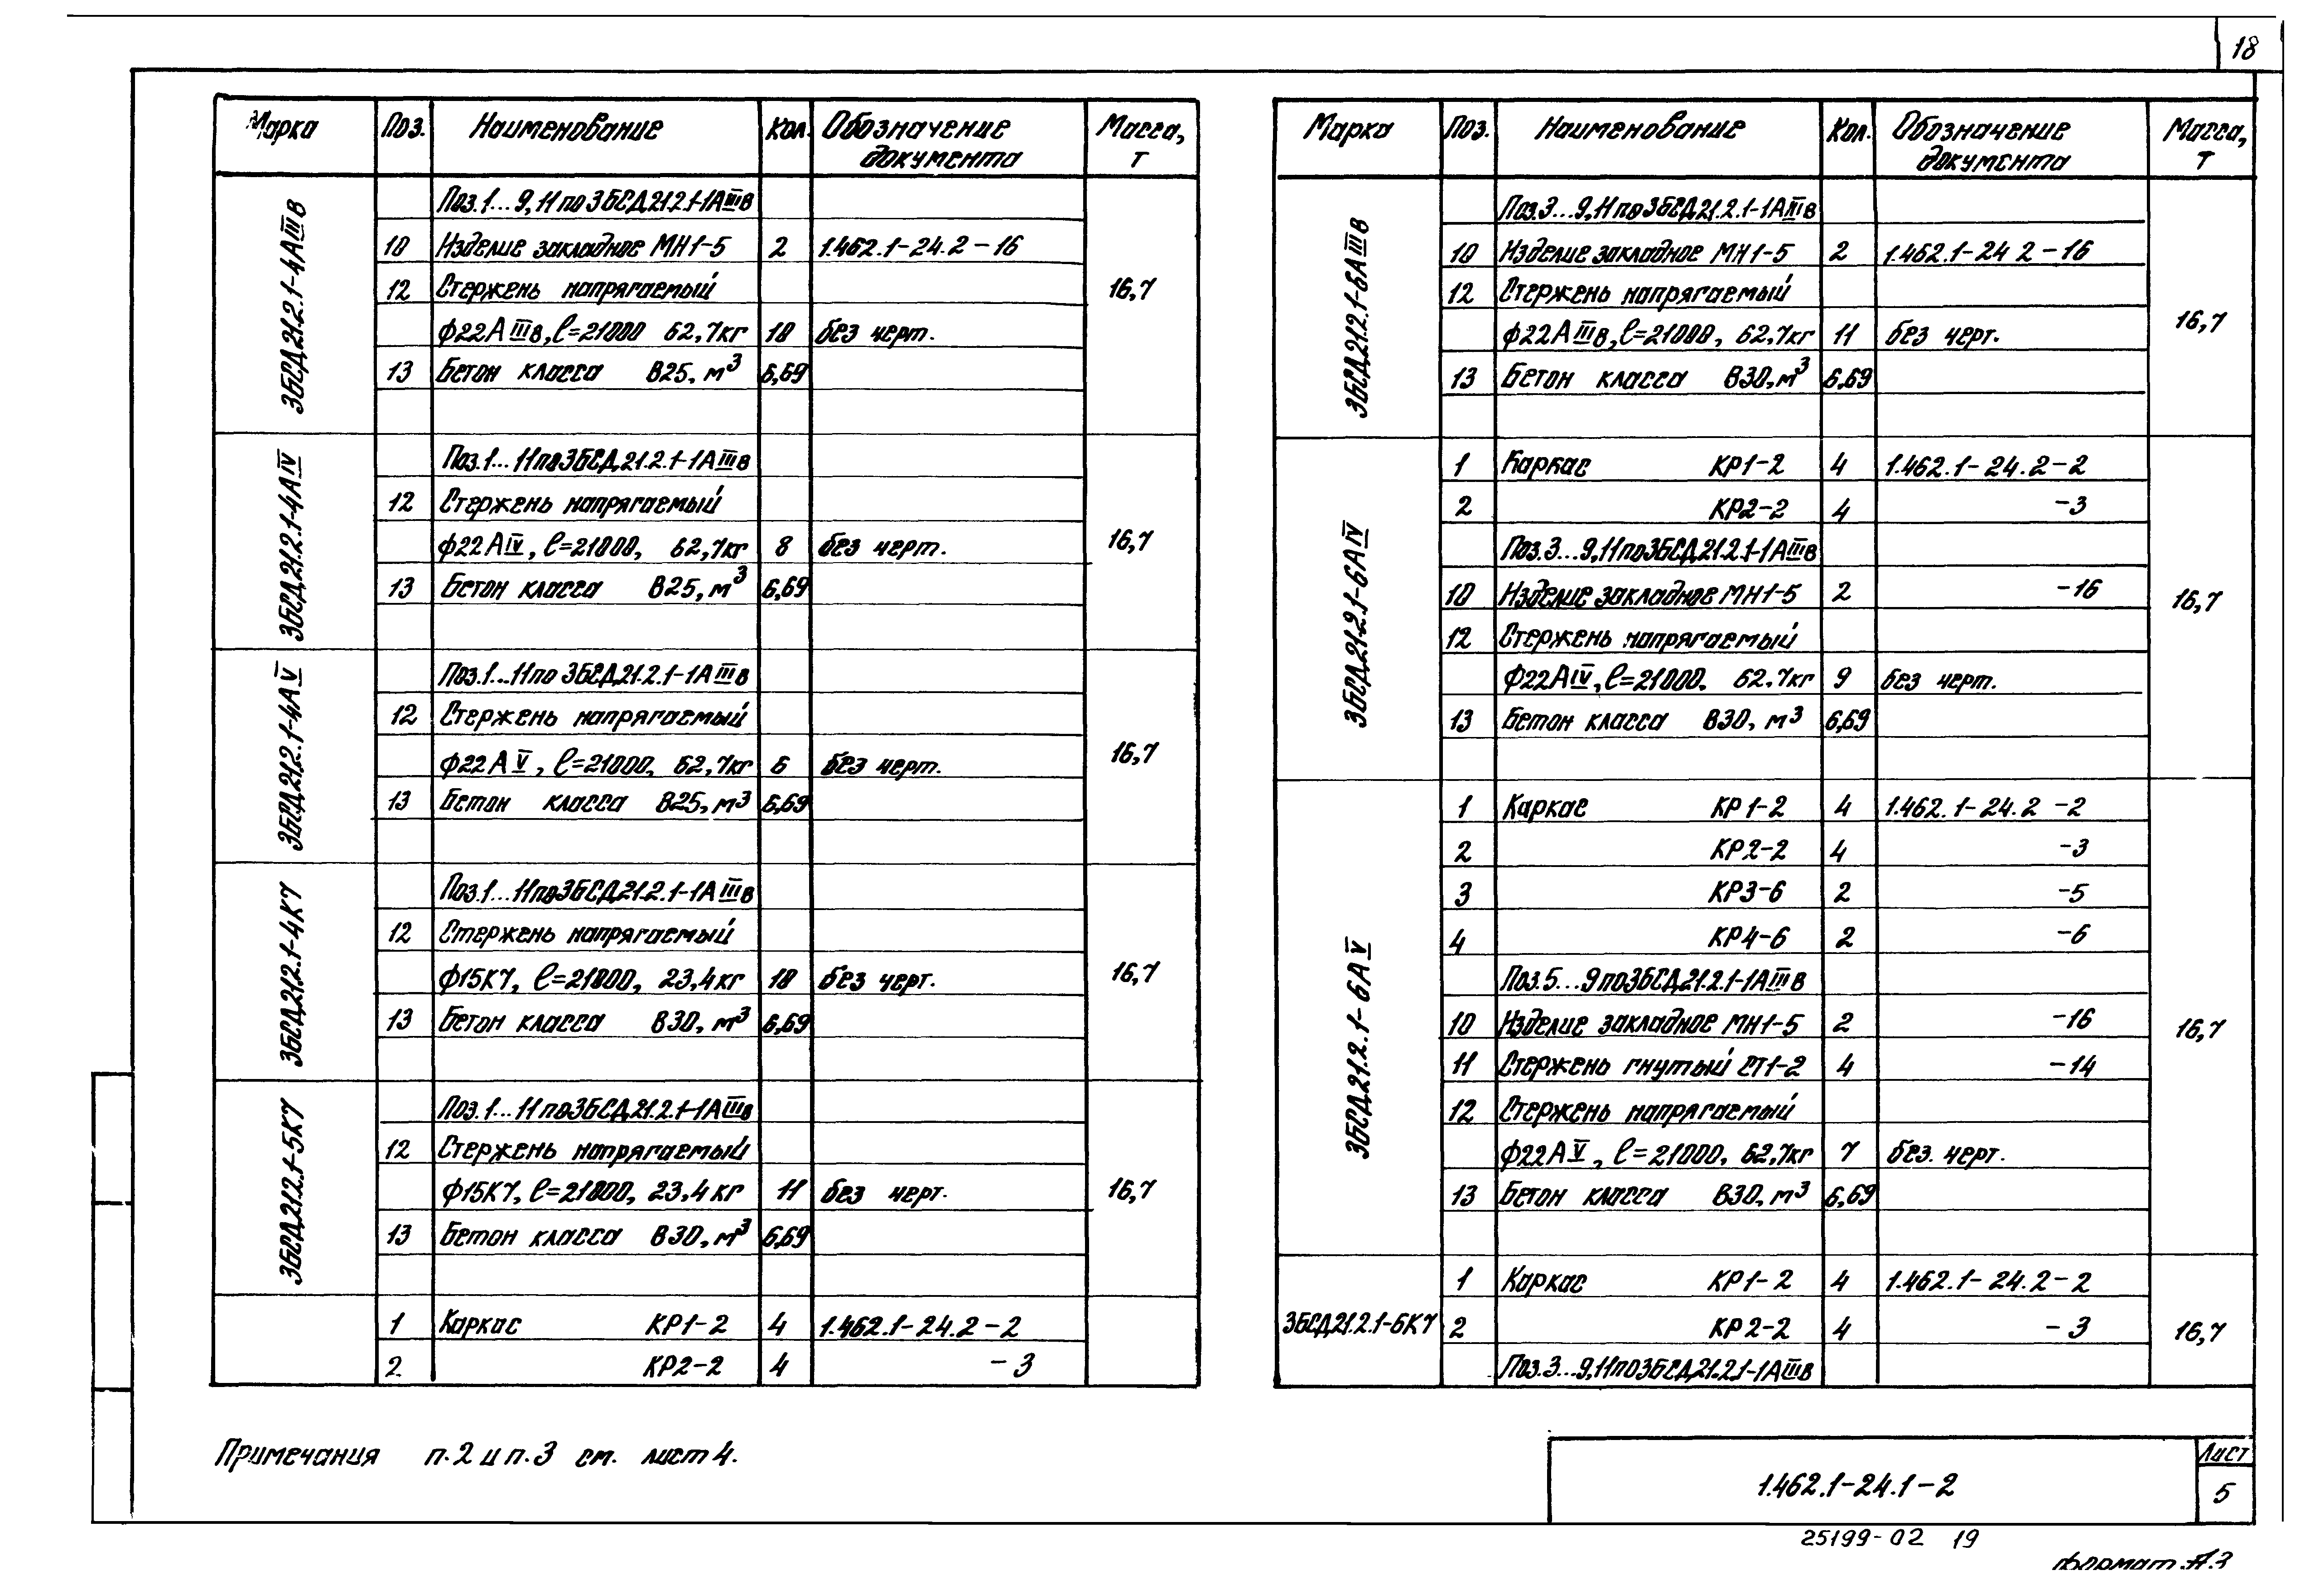 18
Марка Поз. Наименование Кол. Обозначение документа Масса, т
3БСД21.2.1-4АIIIв
Поз.1...9,11 по 3БСД21.2.1-1АIIIв
10 Изделие закладное МН1-5 2 1.462.1-24.2-16
12 Стержень напрягаемый 16,7
ф22АIIIв, ℓ=21000 62,7кг 10 без черт.
13 Бетон класса В25, м³ 6,69
3БСД21.2.1-4АIV
Поз.1...11 по 3БСД21.2.1-1АIIIв
12 Стержень напрягаемый
ф22АIV, ℓ=21000, 62,7кг 8 без черт. 16,7
13 Бетон класса В25, м³ 6,69
3БСД21.2.1-4АV
Поз.1...11 по 3БСД21.2.1-1АIIIв
12 Стержень напрягаемый
ф22АV, ℓ=21000, 62,7кг 6 без черт. 16,7
13 Бетон класса В25, м³ 6,69
3БСД21.2.1-4К7
Поз.1...11 по 3БСД21.2.1-1АIIIв
12 Стержень напрягаемый
ф15К7, ℓ=21000, 23,4кг 10 без черт. 16,7
13 Бетон класса В30, м³ 6,69
3БСД21.2.1-5К7
Поз.1...11 по 3БСД21.2.1-1АIIIв
12 Стержень напрягаемый
ф15К7, ℓ=21000, 23,4кг 11 без черт. 16,7
13 Бетон класса В30, м³ 6,69
1 Каркас КР1-2 4 1.462.1-24.2-2
2 КР2-2 4 -3
Марка Поз. Наименование Кол. Обозначение документа Масса, т
3БСД21.2.1-6АIIIв
Поз.3...9,11 по 3БСД21.2.1-1АIIIв
10 Изделие закладное МН1-5 2 1.462.1-24.2-16
12 Стержень напрягаемый
ф22АIIIв, ℓ=21000, 62,7кг 11 без черт. 16,7
13 Бетон класса В30, м³ 6,69
3БСД21.2.1-6АIV
1 Каркас КР1-2 4 1.462.1-24.2-2
2 КР2-2 4 -3
Поз.3...9,11 по 3БСД21.2.1-1АIIIв
10 Изделие закладное МН1-5 2 -16
12 Стержень напрягаемый 16,7
ф22АIV, ℓ=21000, 62,7кг 9 без черт.
13 Бетон класса В30, м³ 6,69
3БСД21.2.1-6АV
1 Каркас КР1-2 4 1.462.1-24.2-2
2 КР2-2 4 -3
3 КР3-6 2 -5
4 КР4-6 2 -6
Поз.5...9 по 3БСД21.2.1-1АIIIв
10 Изделие закладное МН1-5 2 -16
11 Стержень гнутый СТ1-2 4 -14 16,7
12 Стержень напрягаемый
ф22АV, ℓ=21000, 62,7кг 7 без. черт.
13 Бетон класса В30, м³ 6,69
1 Каркас КР1-2 4 1.462.1-24.2-2
3БСД21.2.1-6К7 2 КР2-2 4 -3 16,7
Поз.3...9,11 по 3БСД21.2.1-1АIIIв
Примечания п.2 и п.3 см. лист 4.
1.462.1-24.1-2
Лист
5
25199-02 19
формат А3